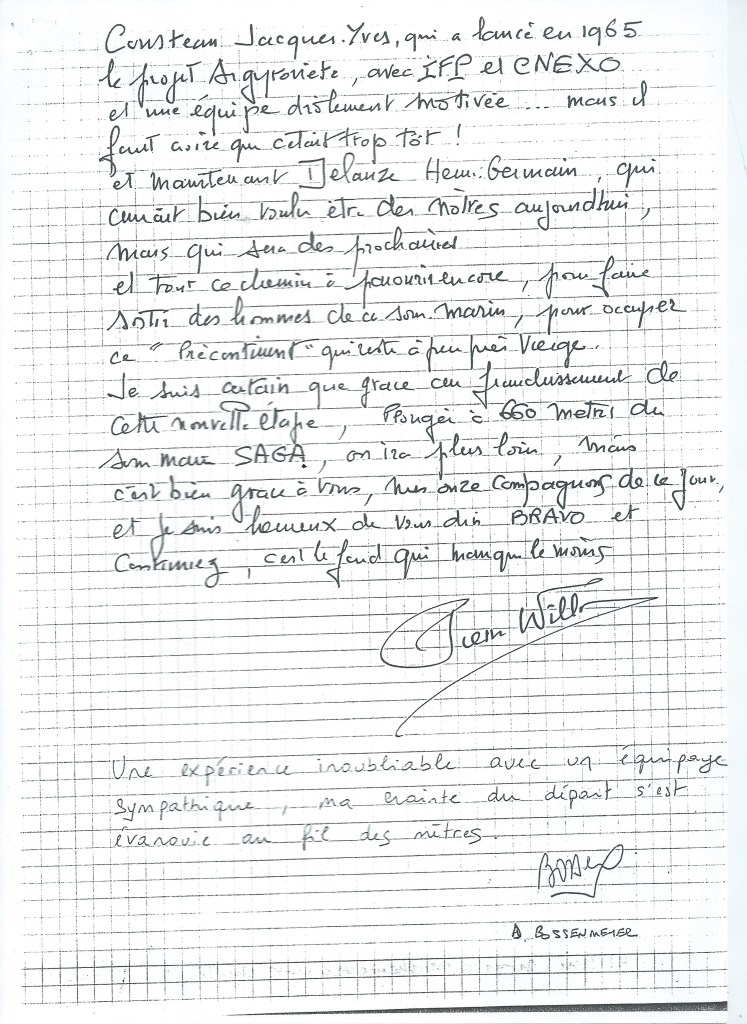 Cousteau Jacques-Yves, qui a lancé en 1965
le projet Argyronète, avec IFP et CNEXO
et une équipe drôlement motivée ... mais il
faut croire que c'était trop tôt !
et maintenant Delauze Henri-Germain, qui
aurait bien voulu être des nôtres aujourdhui,
mais qui sera des prochaines
et tout ce chemin à parcourir encore, pour faire
sortir des hommes de ce sous-marin, pour occuper
ce "Précontinent" qui reste à peu près Vierge.
Je suis certain que grace au franchissement de
cette nouvelle étape, Plongée à 600 metres du
sous marin SAGA, on ira plus loin, mais
c'est bien grace à vous, mes onze Compagnons de ce jour,
et je suis heureux de vous dire BRAVO et
Continuez, c'est le fond qui manque le moins
Willm
Une expérience inoubliable avec un équipage
sympathique, ma crainte du départ s'est
évanouie au fil des mètres.
A. BOSSENMEIER